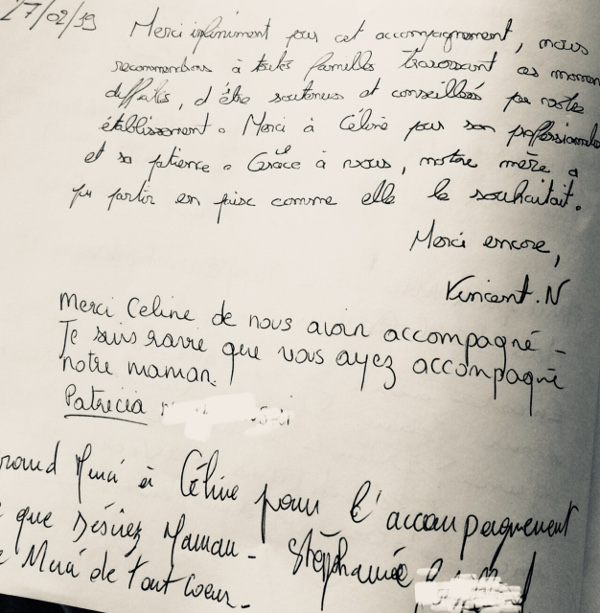 27/02/19
Merci infiniment pour cet accompagnement, nous
recommandons à toutes familles traversant ces momen
difficiles, d'être soutenues et conseillées par votre
établissement. Merci à Céline pour son professionnalis
et sa patience. Grâce à vous, notre mère a
pu partir en paix comme elle le souhaitait.
Merci encore,
Vincent.N
Merci Celine de nous avoir accompagné -
Je suis ravie que vous ayez accompagné
notre maman.
Patricia
rand Merci à Céline pour l'accompagnement
que Désirez Maman - Stéphanie
Merci de tout coeur.